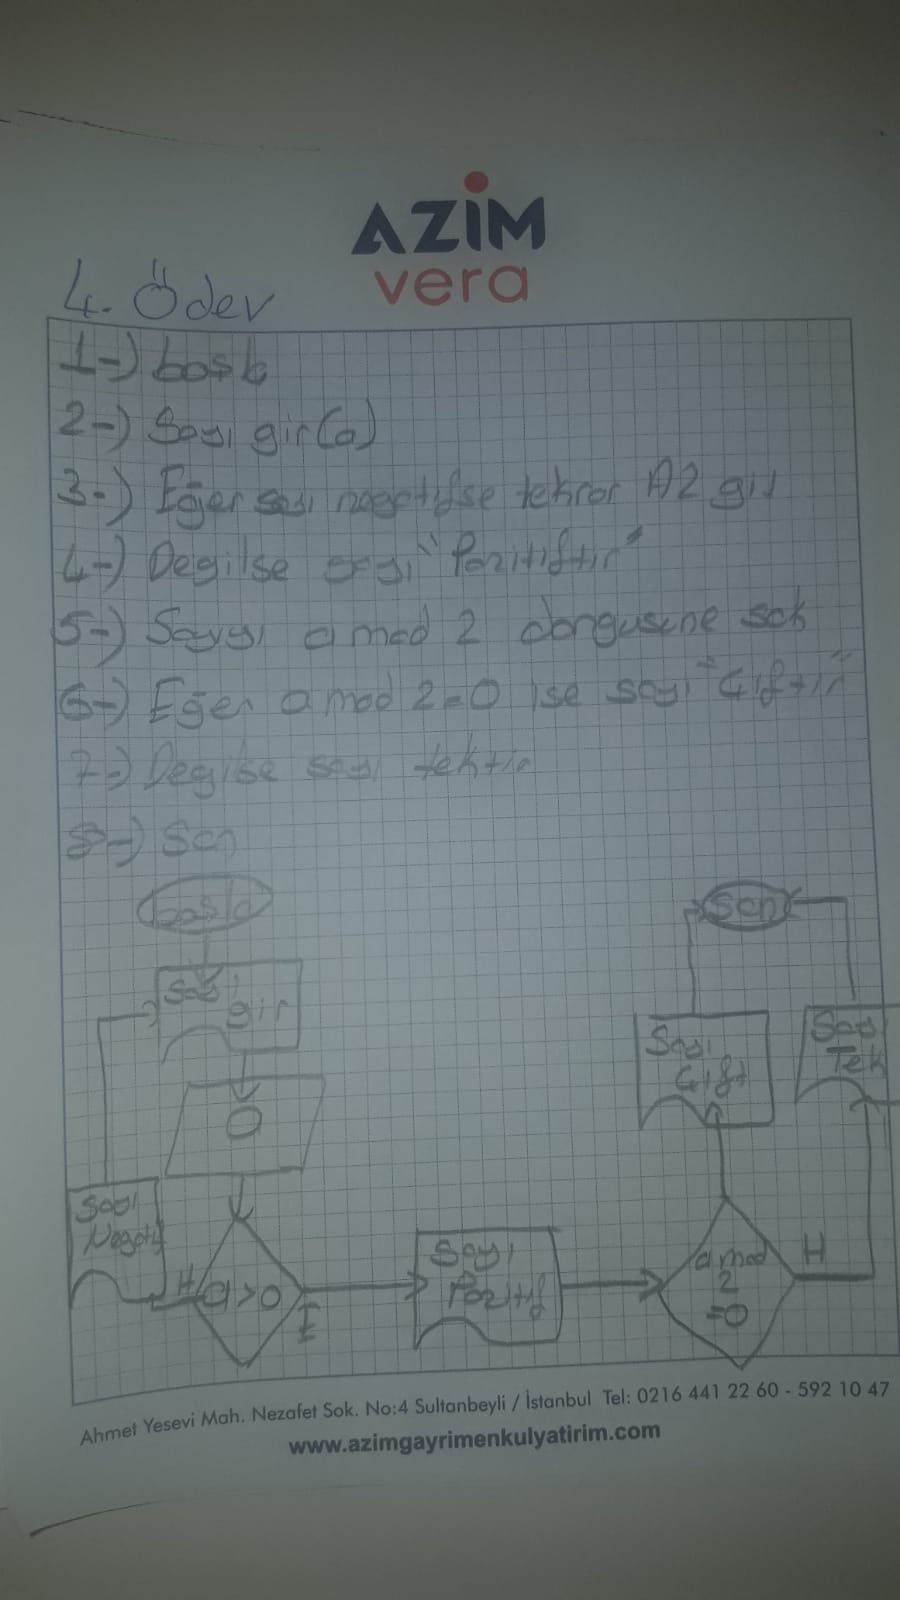 AZİM
vera
4. Ödev
1-) başla
2-) Sayı gir(a)
3-) Eğer sayı negatifse tekrar A2 git
4-) Degilse sayı "Pozitiftir"
5-) Sayıyı a mod 2 dongusune sok
6-) Eğer a mod 2=0 ise sayı "Çiftir"
7-) Degilse sayı tektir
8-) Son
başla
Son
Sayı gir
Sayı Çift
Sayı Tek
a
Sayı Negatif
H
a>0
E
Sayı Pozitif
a mod 2 =0
H
Ahmet Yesevi Mah. Nezafet Sok. No:4 Sultanbeyli / İstanbul Tel: 0216 441 22 60 - 592 10 47
www.azimgayrimenkulyatirim.com